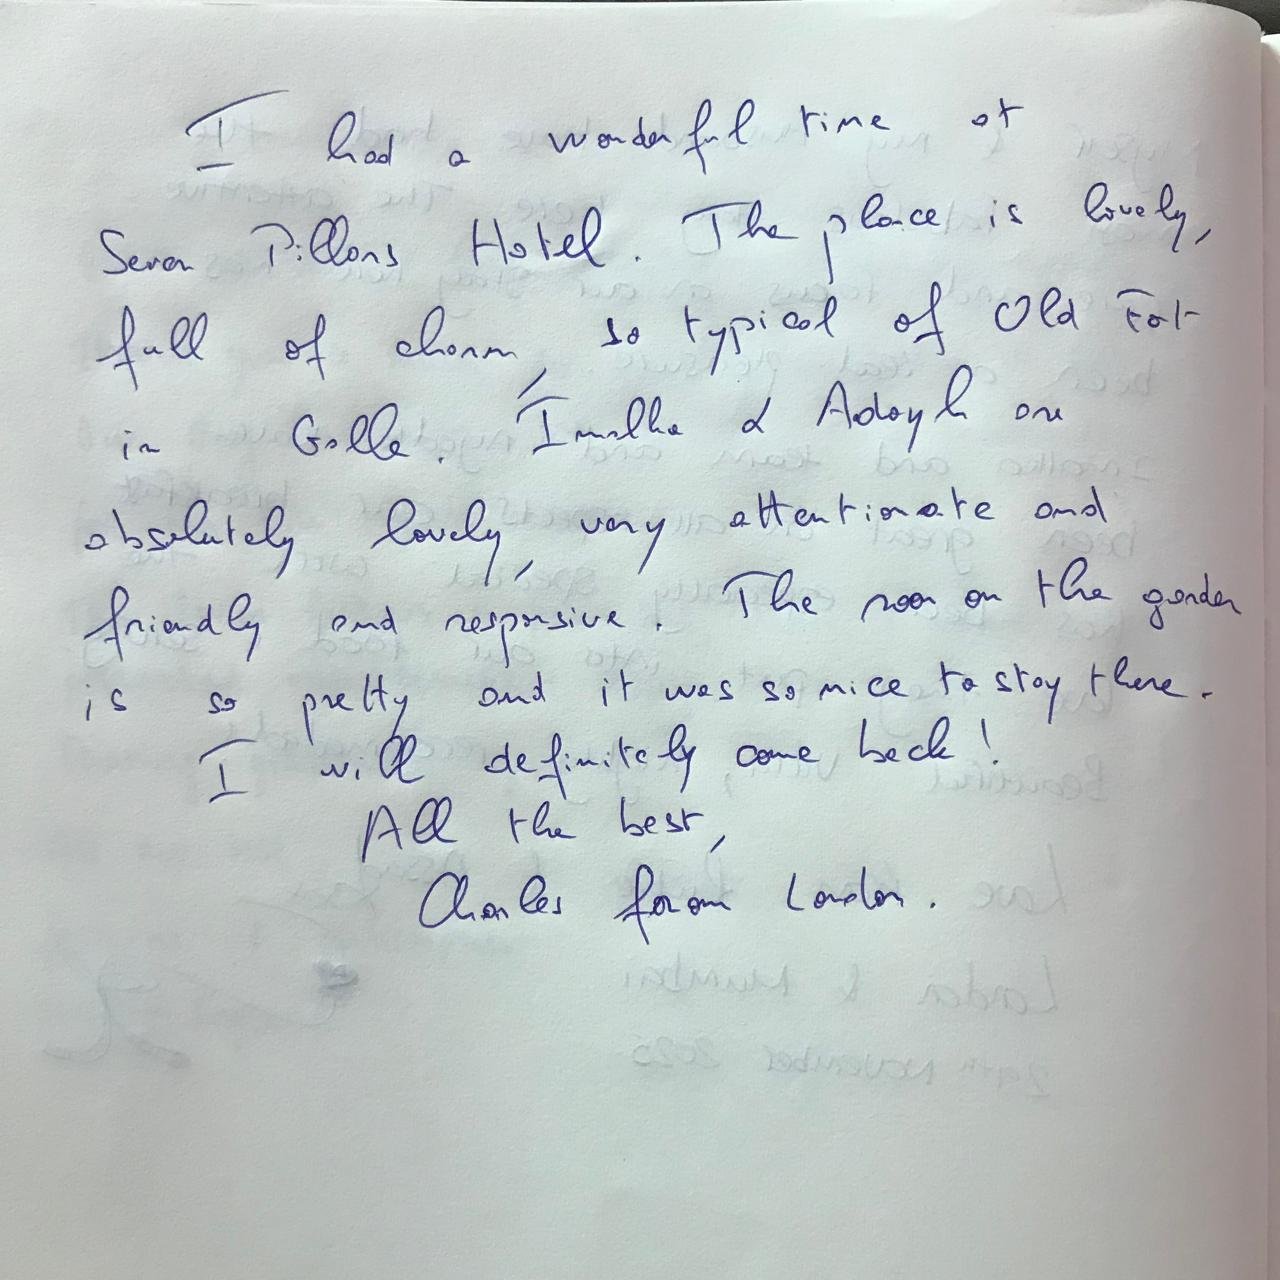 I had a wonderful time at
Seven Pillars Hotel. The place is lovely,
full of charm, so typical of Old Fort
in Galle. Imalka & Adayh are
absolutely lovely, very attentionate and
friendly and responsive. The room on the garden
is so pretty and it was so nice to stay there.
I will definitely come back!
All the best,
Charles from London.